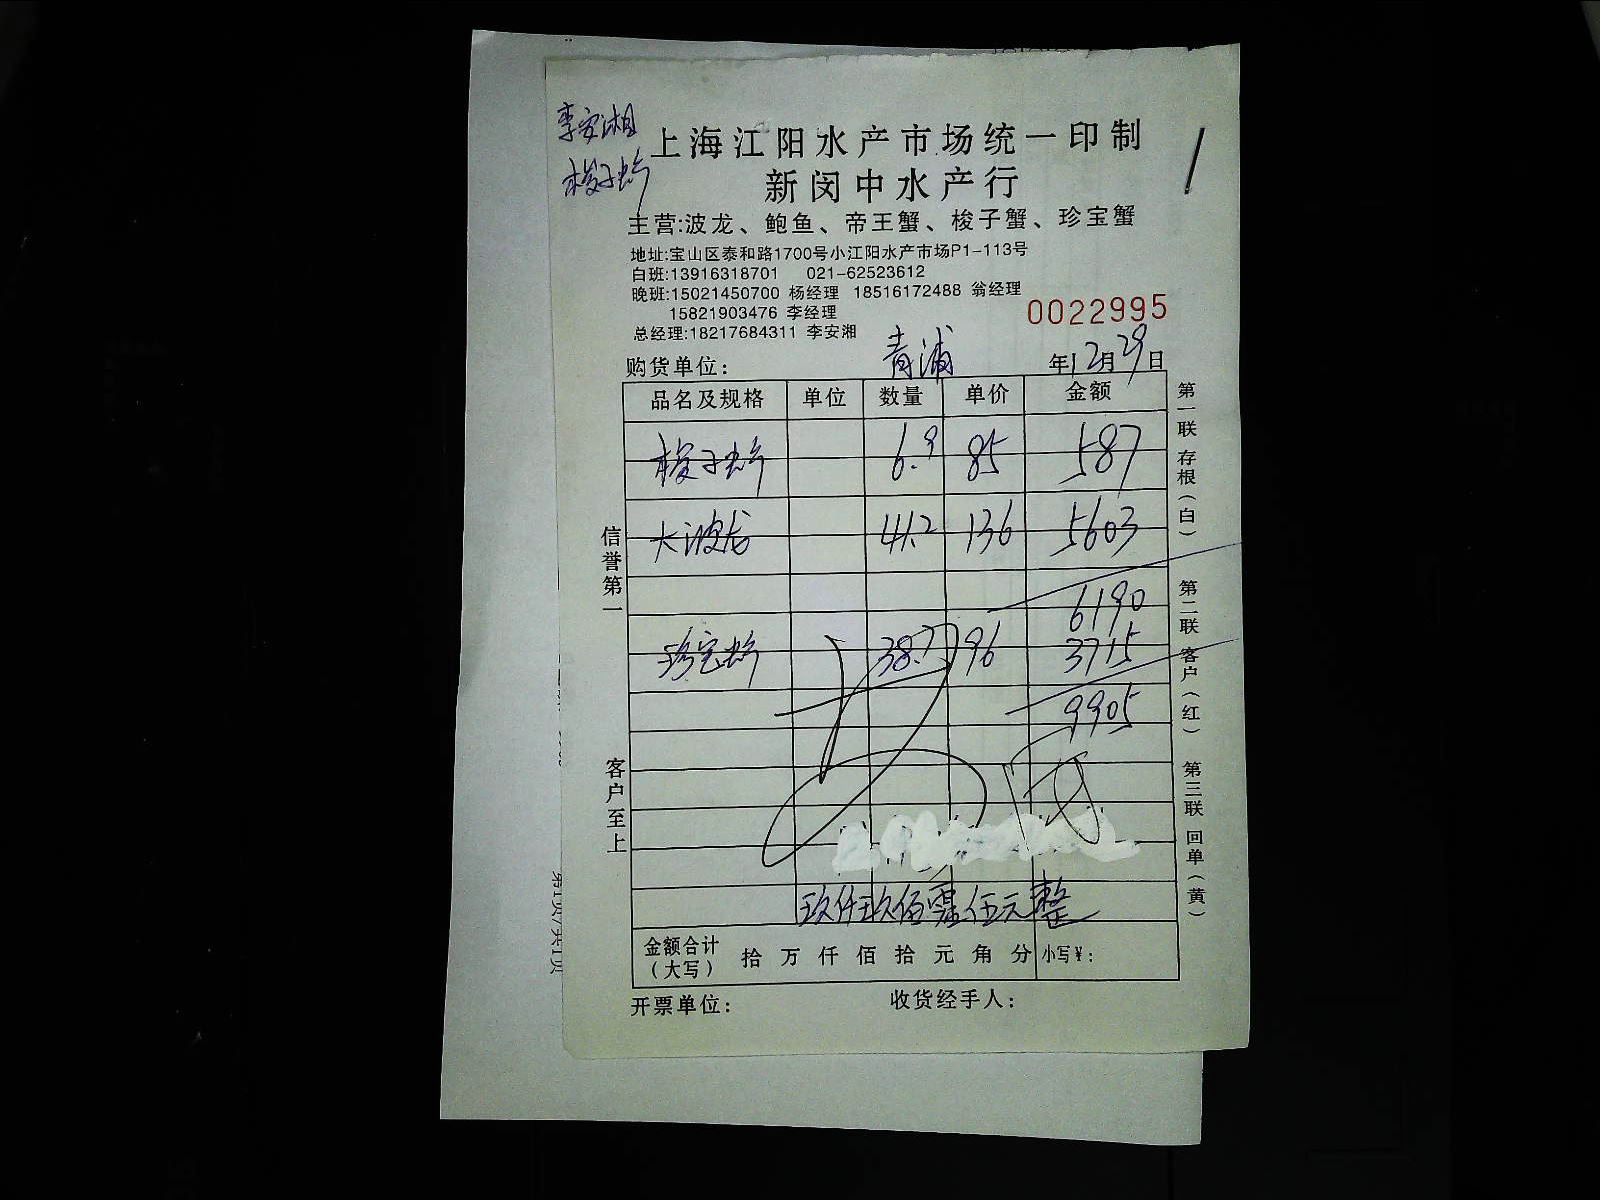 李安湘
梭子蟹
上海江阳水产市场统一印制
新闵中水产行
主营:波龙、鲍鱼、帝王蟹、梭子蟹、珍宝蟹
地址:宝山区泰和路1700号小江阳水产市场P1-113号
白班:13916318701 021-62523612
晚班:15021450700 杨经理 18516172488 翁经理
15821903476 李经理
总经理:18217684311 李安湘
0022995
购货单位: 青浦 年12月29日
品名及规格 单位 数量 单价 金额
梭子蟹 6.9 85 587
大波龙 41.2 136 5603
6190
珍宝蟹 38.7 96 3715
9905
玖仟玖佰零伍元整
金额合计(大写) 拾 万 仟 佰 拾 元 角 分 小写¥:
开票单位: 收货经手人:
信誉第一
客户至上
第一联 存根(白)
第二联 客户(红)
第三联 回单(黄)
第1页/共1页